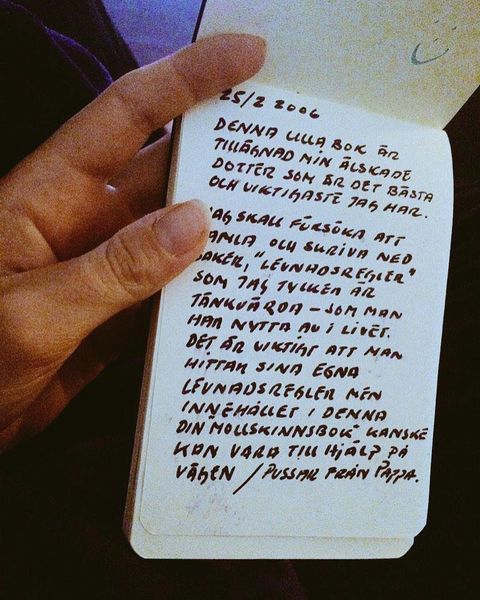 25/2 2006
DENNA LILLA BOK ÄR
TILLÄGNAD MIN ÄLSKADE
DOTTER SOM ÄR DET BÄSTA
OCH VIKTIGASTE JAG HAR.
JAG SKALL FÖRSÖKA ATT
SAMLA OCH SKRIVA NED
SAKER, "LEVNADSREGLER"
SOM JAG TYCKER ÄR
TÄNKVÄRDA – SOM MAN
HAR NYTTA AV I LIVET.
DET ÄR VIKTIGT ATT MAN
HITTAR SINA EGNA
LEVNADSREGLER MEN
INNEHÅLLET I DENNA
DIN MOLLSKINNSBOK KANSKE
KAN VARA TILL HJÄLP PÅ
VÄGEN / PUSSAR FRÅN PAPPA.